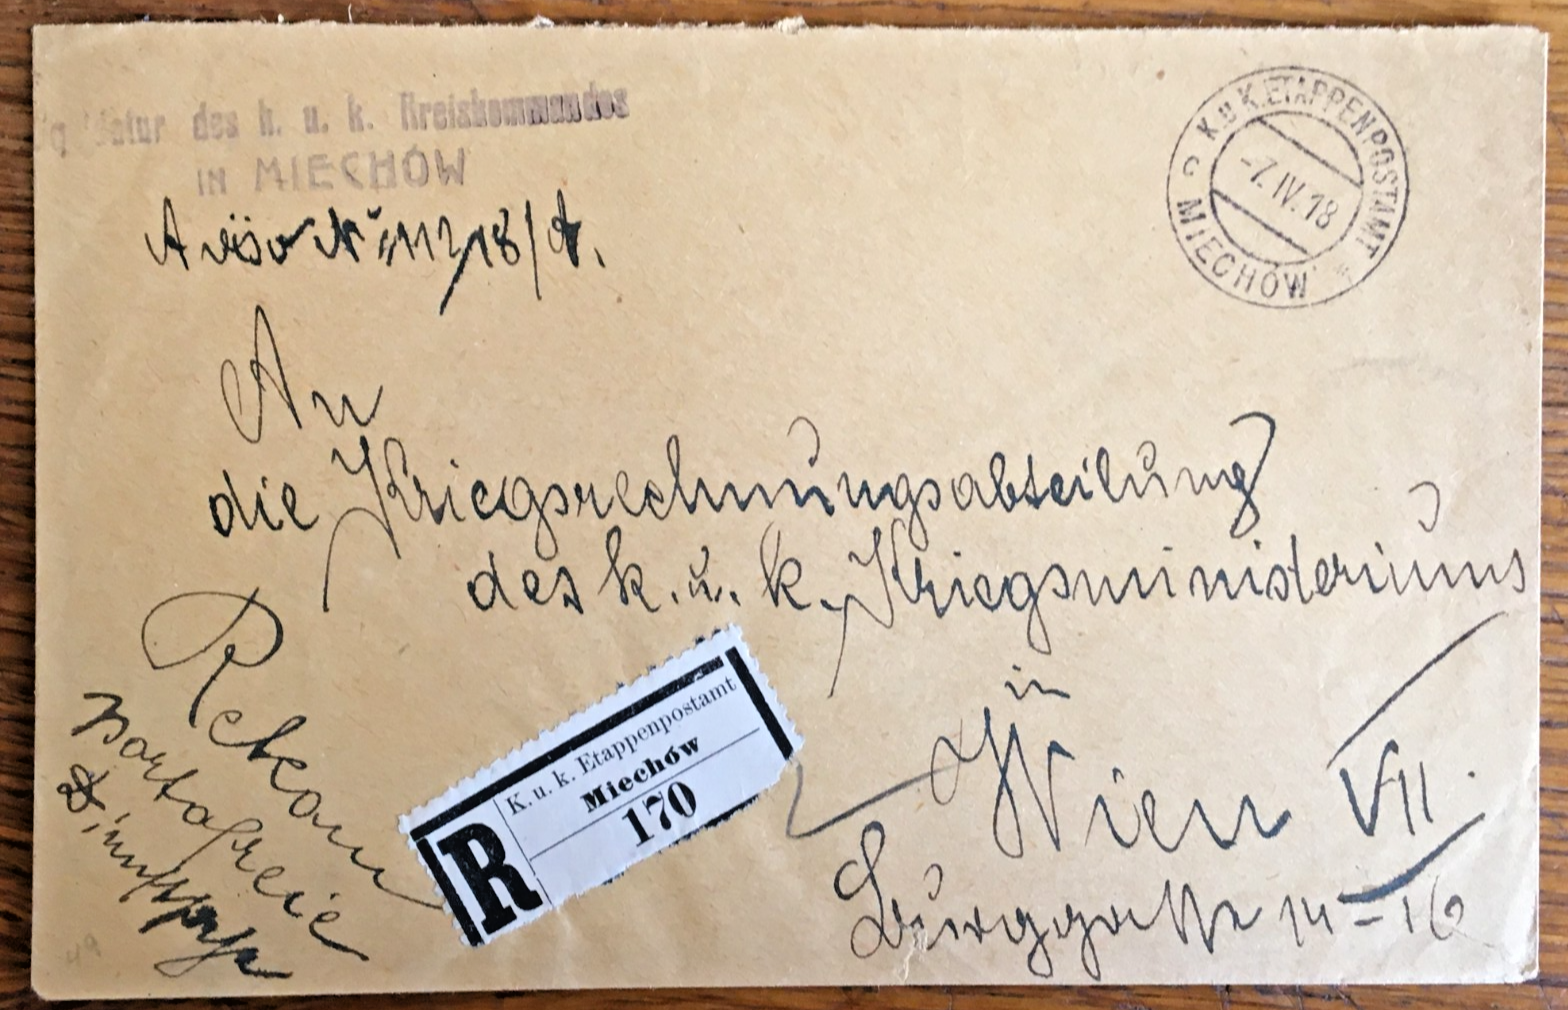 des k. u. k. Kreiskommandos
IN MIECHÓW
K.U.K. ETAPPENPOSTAMT
-7.IV.18
MIECHÓW
An
die Kriegsrechnungsabteilung
des k. u. k. Kriegsministeriums
in
Wien VII.
Burggasse 14-16
Rekom
portofreie
Dienstsache
K. u. k. Etappenpostamt
Miechów
R 170